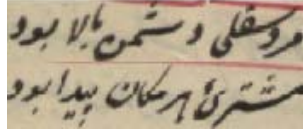 مرد سفلی دشمن بالا بود
مشتریٔ هر مکان پیدا بود